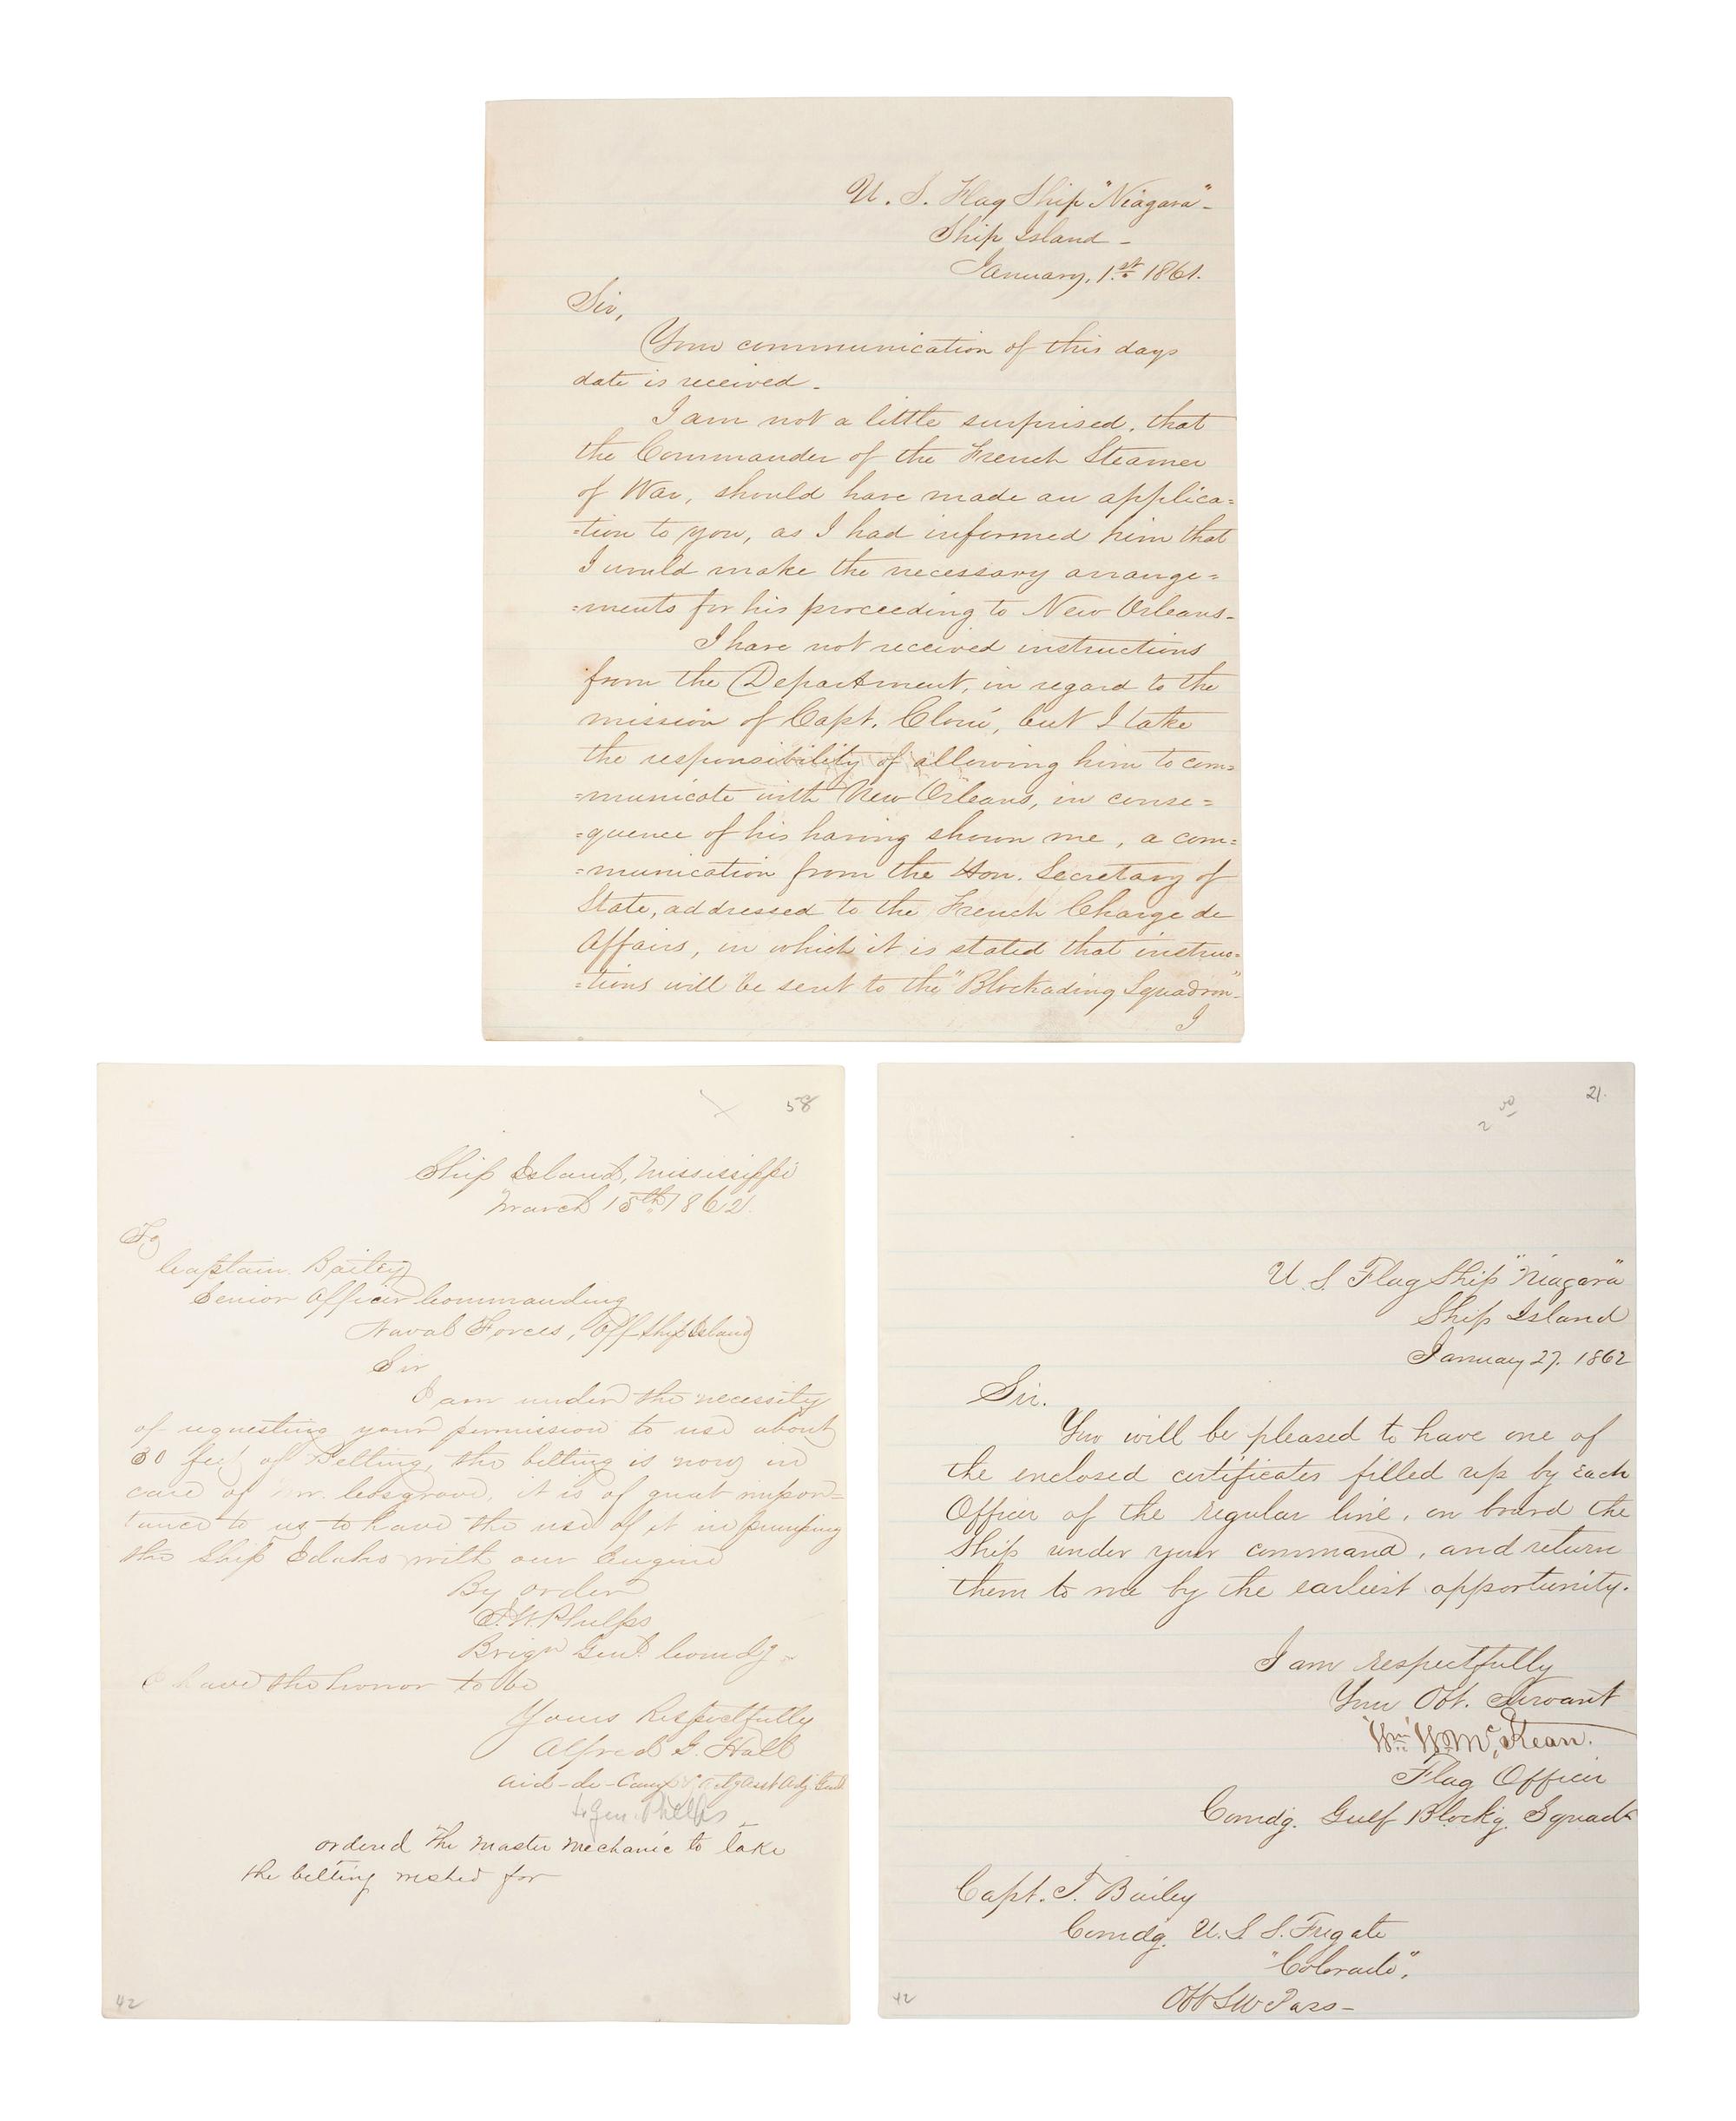 U. S. Flag Ship "Niagara" -
Ship Island -
January, 1st 1861.
Sir,
Your communication of this days
date is received -
I am not a little surprised, that
the Commander of the French Steamer
of War, should have made an applica=
=tion to you, as I had informed him that
I would make the necessary arrange=
=ments for his proceeding to New Orleans -
I have not received instructions
from the Department, in regard to the
mission of Capt. Cloué, but I take
the responsibility of allowing him to com=
=municate with New Orleans, in conse=
=quence of his having shown me, a com=
=munication from the Hon. Secretary of
State, addressed to the French Charge de
Affairs, in which it is stated that instruc=
=tions will be sent to the "Blockading Squadron" -
I
58
Ship Island, Mississippi
March 15th 1862
To
Captain Bailey
Senior Officer Commanding
Naval Forces, Off Ship Island
Sir
I am under the necessity
of requesting your permission to use about
30 feet of Belting, the belting is now in
care of Mr. Cosgrove, it is of great impor=
tance to us to have the use of it in pumping
the Ship Idaho with our Engine
By order
J. W. Phelps
Brig'r Gen'l Comdg
I have the honor to be
Yours Respectfully
Alfred G. Hall
Aid-de-Camp & Actg Asst Adj. Genl
to Gen. Phelps
ordered the Master Mechanic to take
the belting wished for
42
21.
2 50
U. S. Flag Ship "Niagara"
Ship Island
January 27. 1862
Sir.
You will be pleased to have one of
the enclosed certificates filled up by each
Officer of the regular line, on board the
Ship under your command, and return
them to me by the earliest opportunity.
I am respectfully
Your Obt. Servant
Wm W. McKean.
Flag Officer
Comdg. Gulf Blockg. Squad
Capt. T. Bailey
Comdg. U. S. S. Frigate
"Colorado",
Off S W Pass -
42